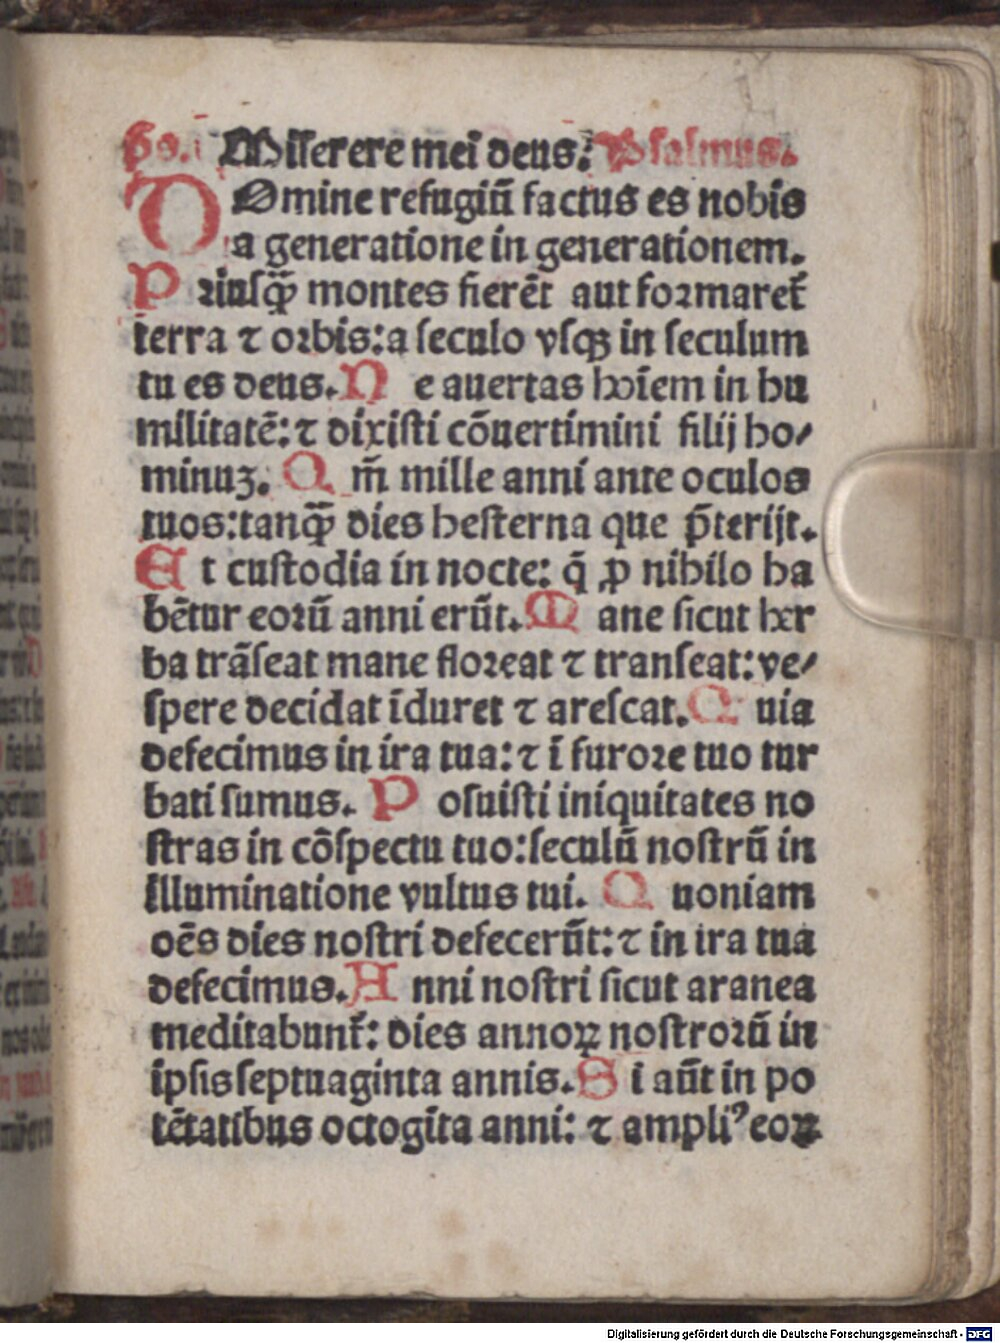 ps. Miserere mei deus. Psalmus.
DOmine refugiū factus es nobis
a generatione in generationem.
Priusq̄ montes fierēt aut formaret᷑
terra ⁊ orbis: a seculo vsqꝫ in seculum
tu es deus. Ne auertas hoīem in hu
militatē: ⁊ dixisti cōuertimini filij ho/
minuꝫ. Qm̄ mille anni ante oculos
tuos: tanq̄ dies hesterna que p̄terijt.
Et custodia in nocte: q̄ ꝓ nihilo ha
bētur eorū anni erūt. Mane sicut her
ba trāseat mane floreat ⁊ transeat: ve/
spere decidat īduret ⁊ arescat. Quia
defecimus in ira tua: ⁊ ī furore tuo tur
bati sumus. Posuisti iniquitates no
stras in cōspectu tuo: seculū nostrū in
illuminatione vultus tui. Quoniam
oēs dies nostri defecerūt: ⁊ in ira tua
defecimus. Anni nostri sicut aranea
meditabunt᷑: dies annoꝝ nostrorū in
ipsis septuaginta annis. Si aūt in po
tētatibus octogīta anni: ⁊ ampliꝰ eoꝝ
Digitalisierung gefördert durch die Deutsche Forschungsgemeinschaft - DFG